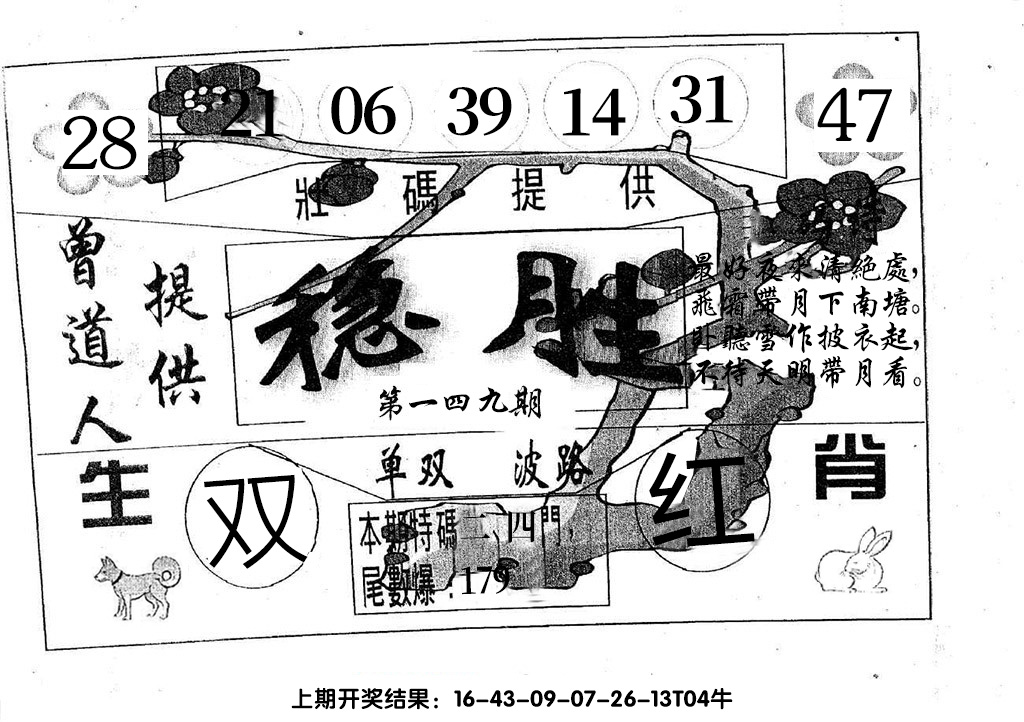 28 21 06 39 14 31 47
壯碼提供
特
曾道人
提供
稳胜
第一四九期
最好夜求清絕處，
飛霜帶月下南塘。
卧聽雪作披衣起，
不待天明帶月看。
单双 波路
生肖
双
红
本期特碼二、四門，
尾數爆：179
上期开奖结果：16-43-09-07-26-13T04牛